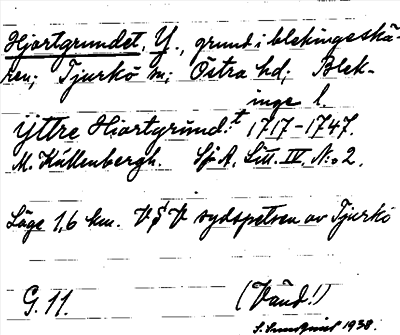 Hjortgrundet, Y., grund i blekingeskä-
ren; Tjurkö sn; Östra hd; Blek-
inge l.
Yttre Hiortgrund:t 1717-1747.
M. Källenbergh. Sjö A. Litt. IV. N:o 2.
Läge 1,6 km. V§V sydspetsen av Tjurkö
G. 11. (Vänd!)
S. 1938.